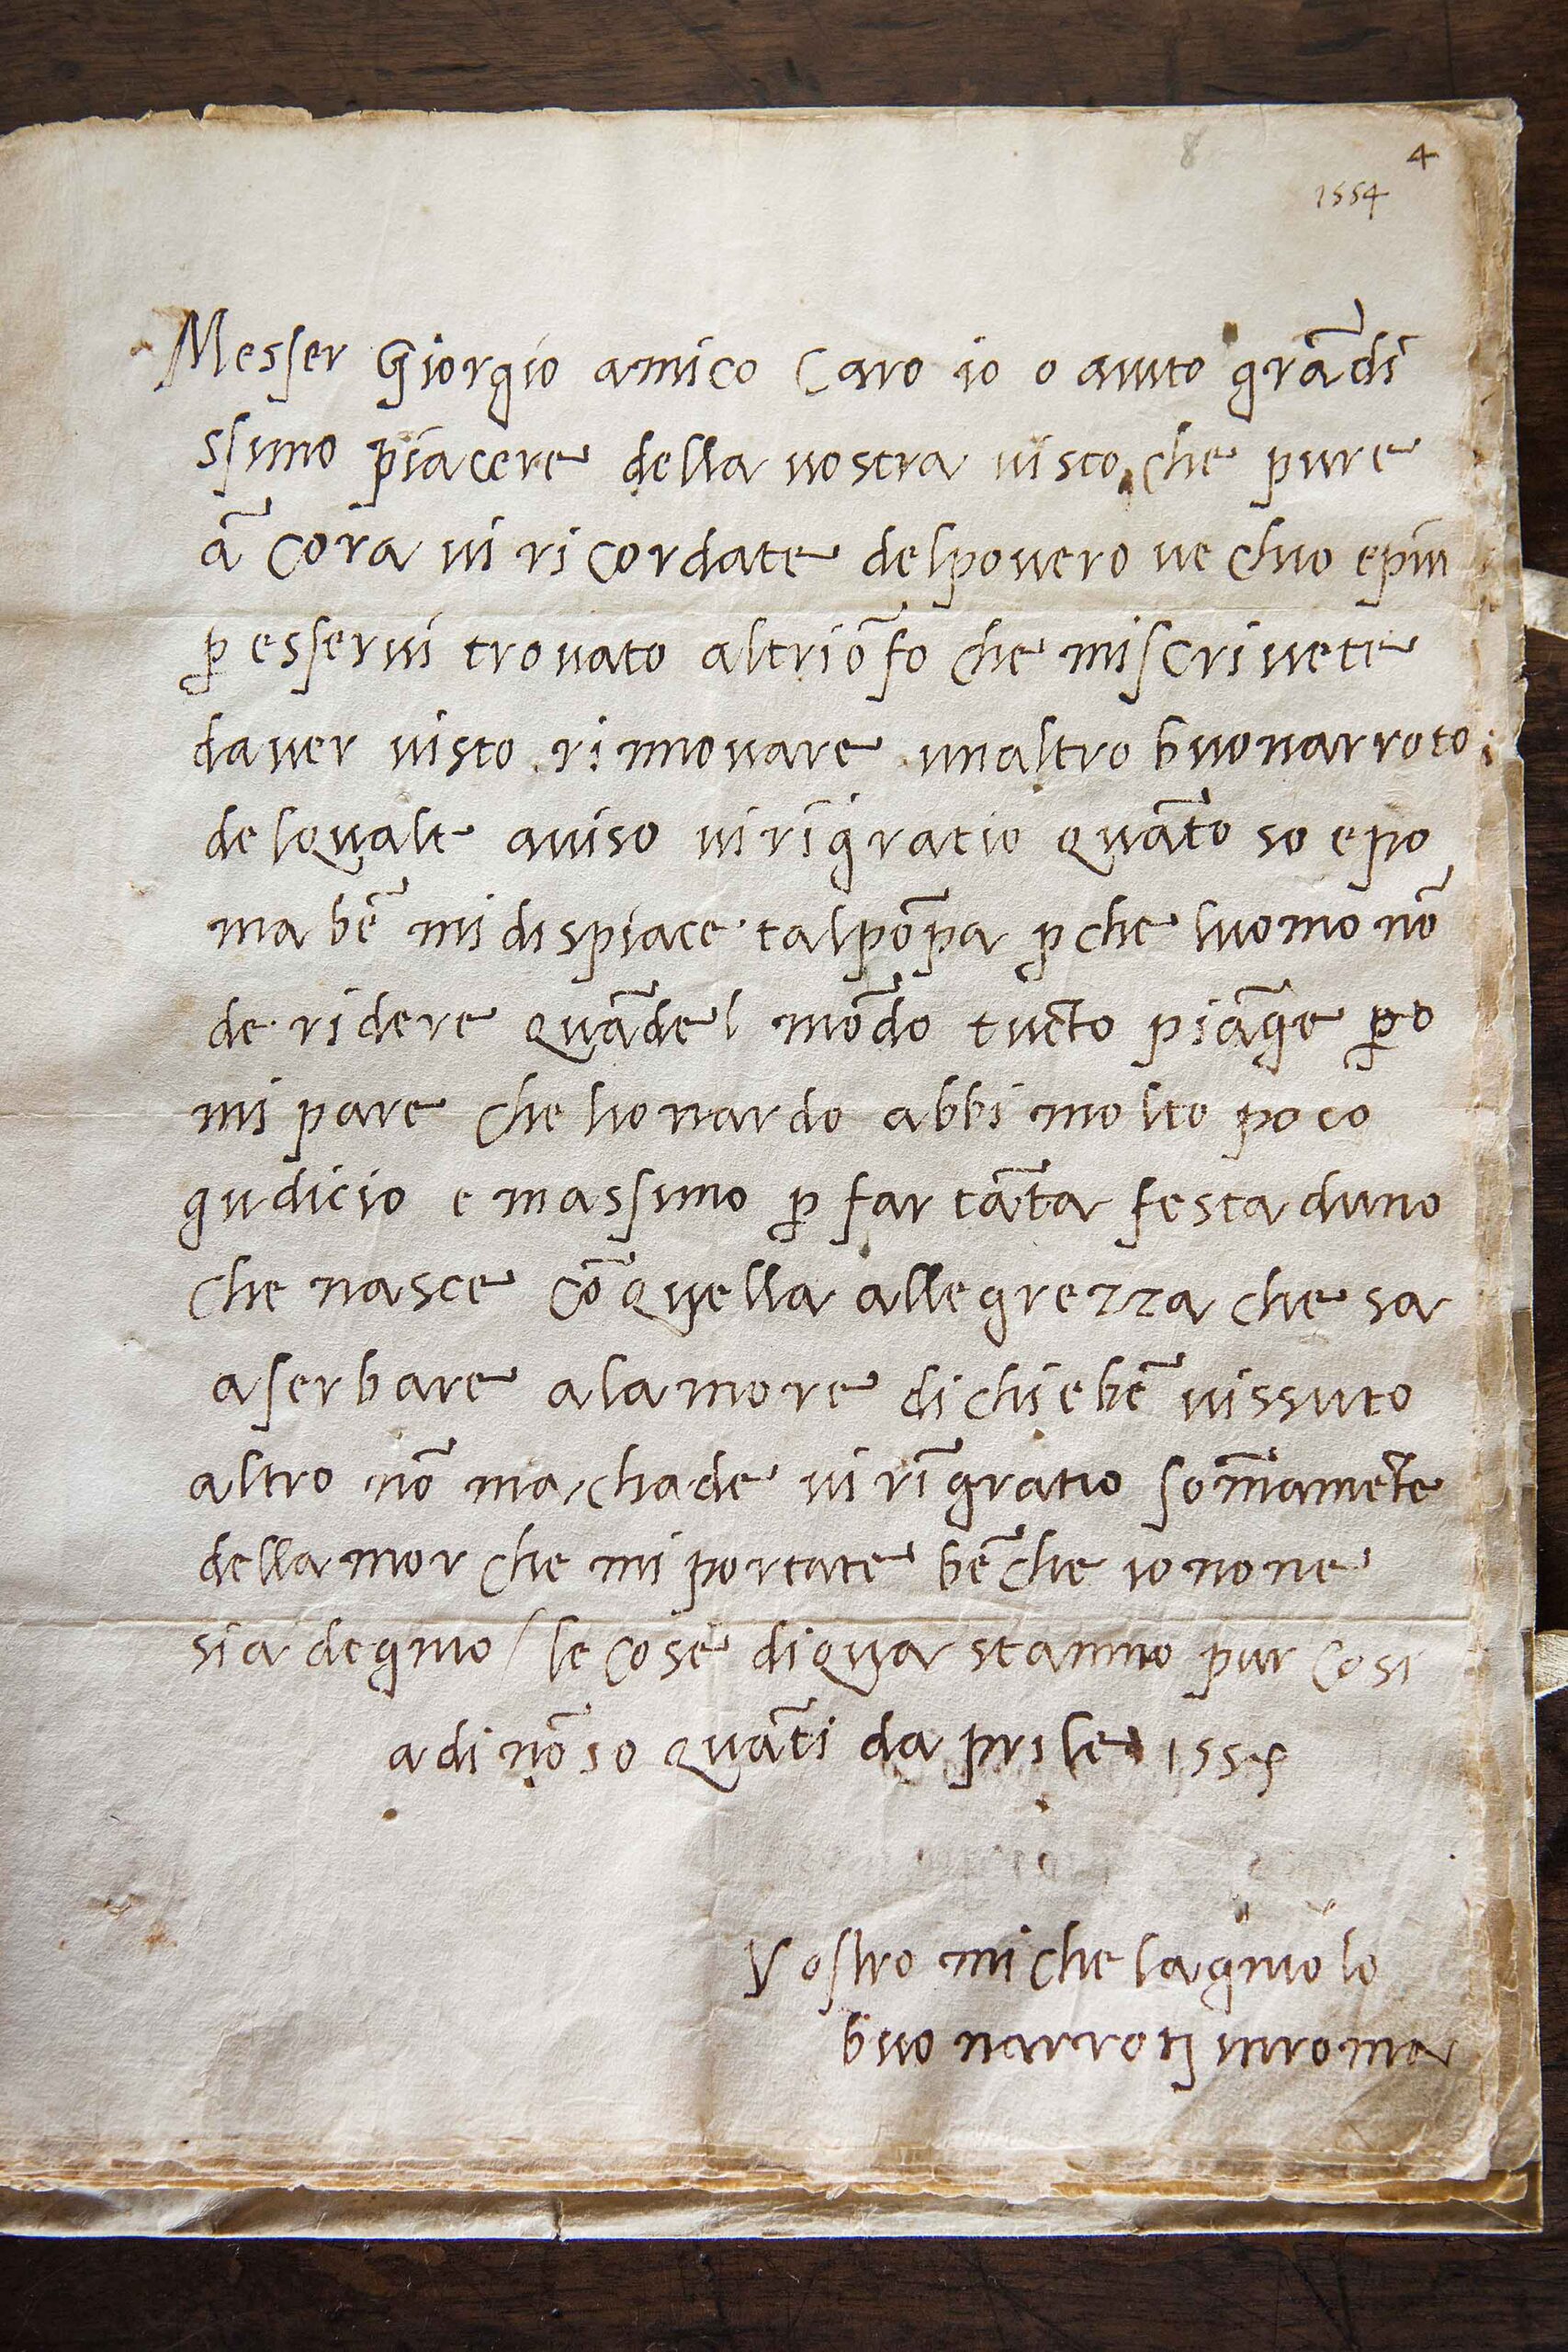 8
4
1554
Messer Giorgio amico caro io o auuto grādi
ssimo piacere della uostra uisto che pure
ā cora ui ricordate delpouero uechio epiu
ꝑ esserui trouato altriōfo che miscriuete
dauer uisto rinnouare unaltro buonarroto
delquale auiso uirīgratio quāto so epo
ma bē mi dispiace talpōpa ꝑche luomo nō
de ridere quādel mōdo tucto piāge ꝑo
mi pare che lionardo abbi molto poco
gudicio e massimo ꝑ far tāta festa duno
che nasce cō quella allegrezza che sa
a serbare alamore di chi e bē uissuto
altro nō machade ui rīgratio som̄amēte
dellamor che mi portate bēche io none
sia degnio / le cose diqua stanno pur cosi
adi nō so quāti daprile 1554
Vostro michelagniolo
buonarroti inroma